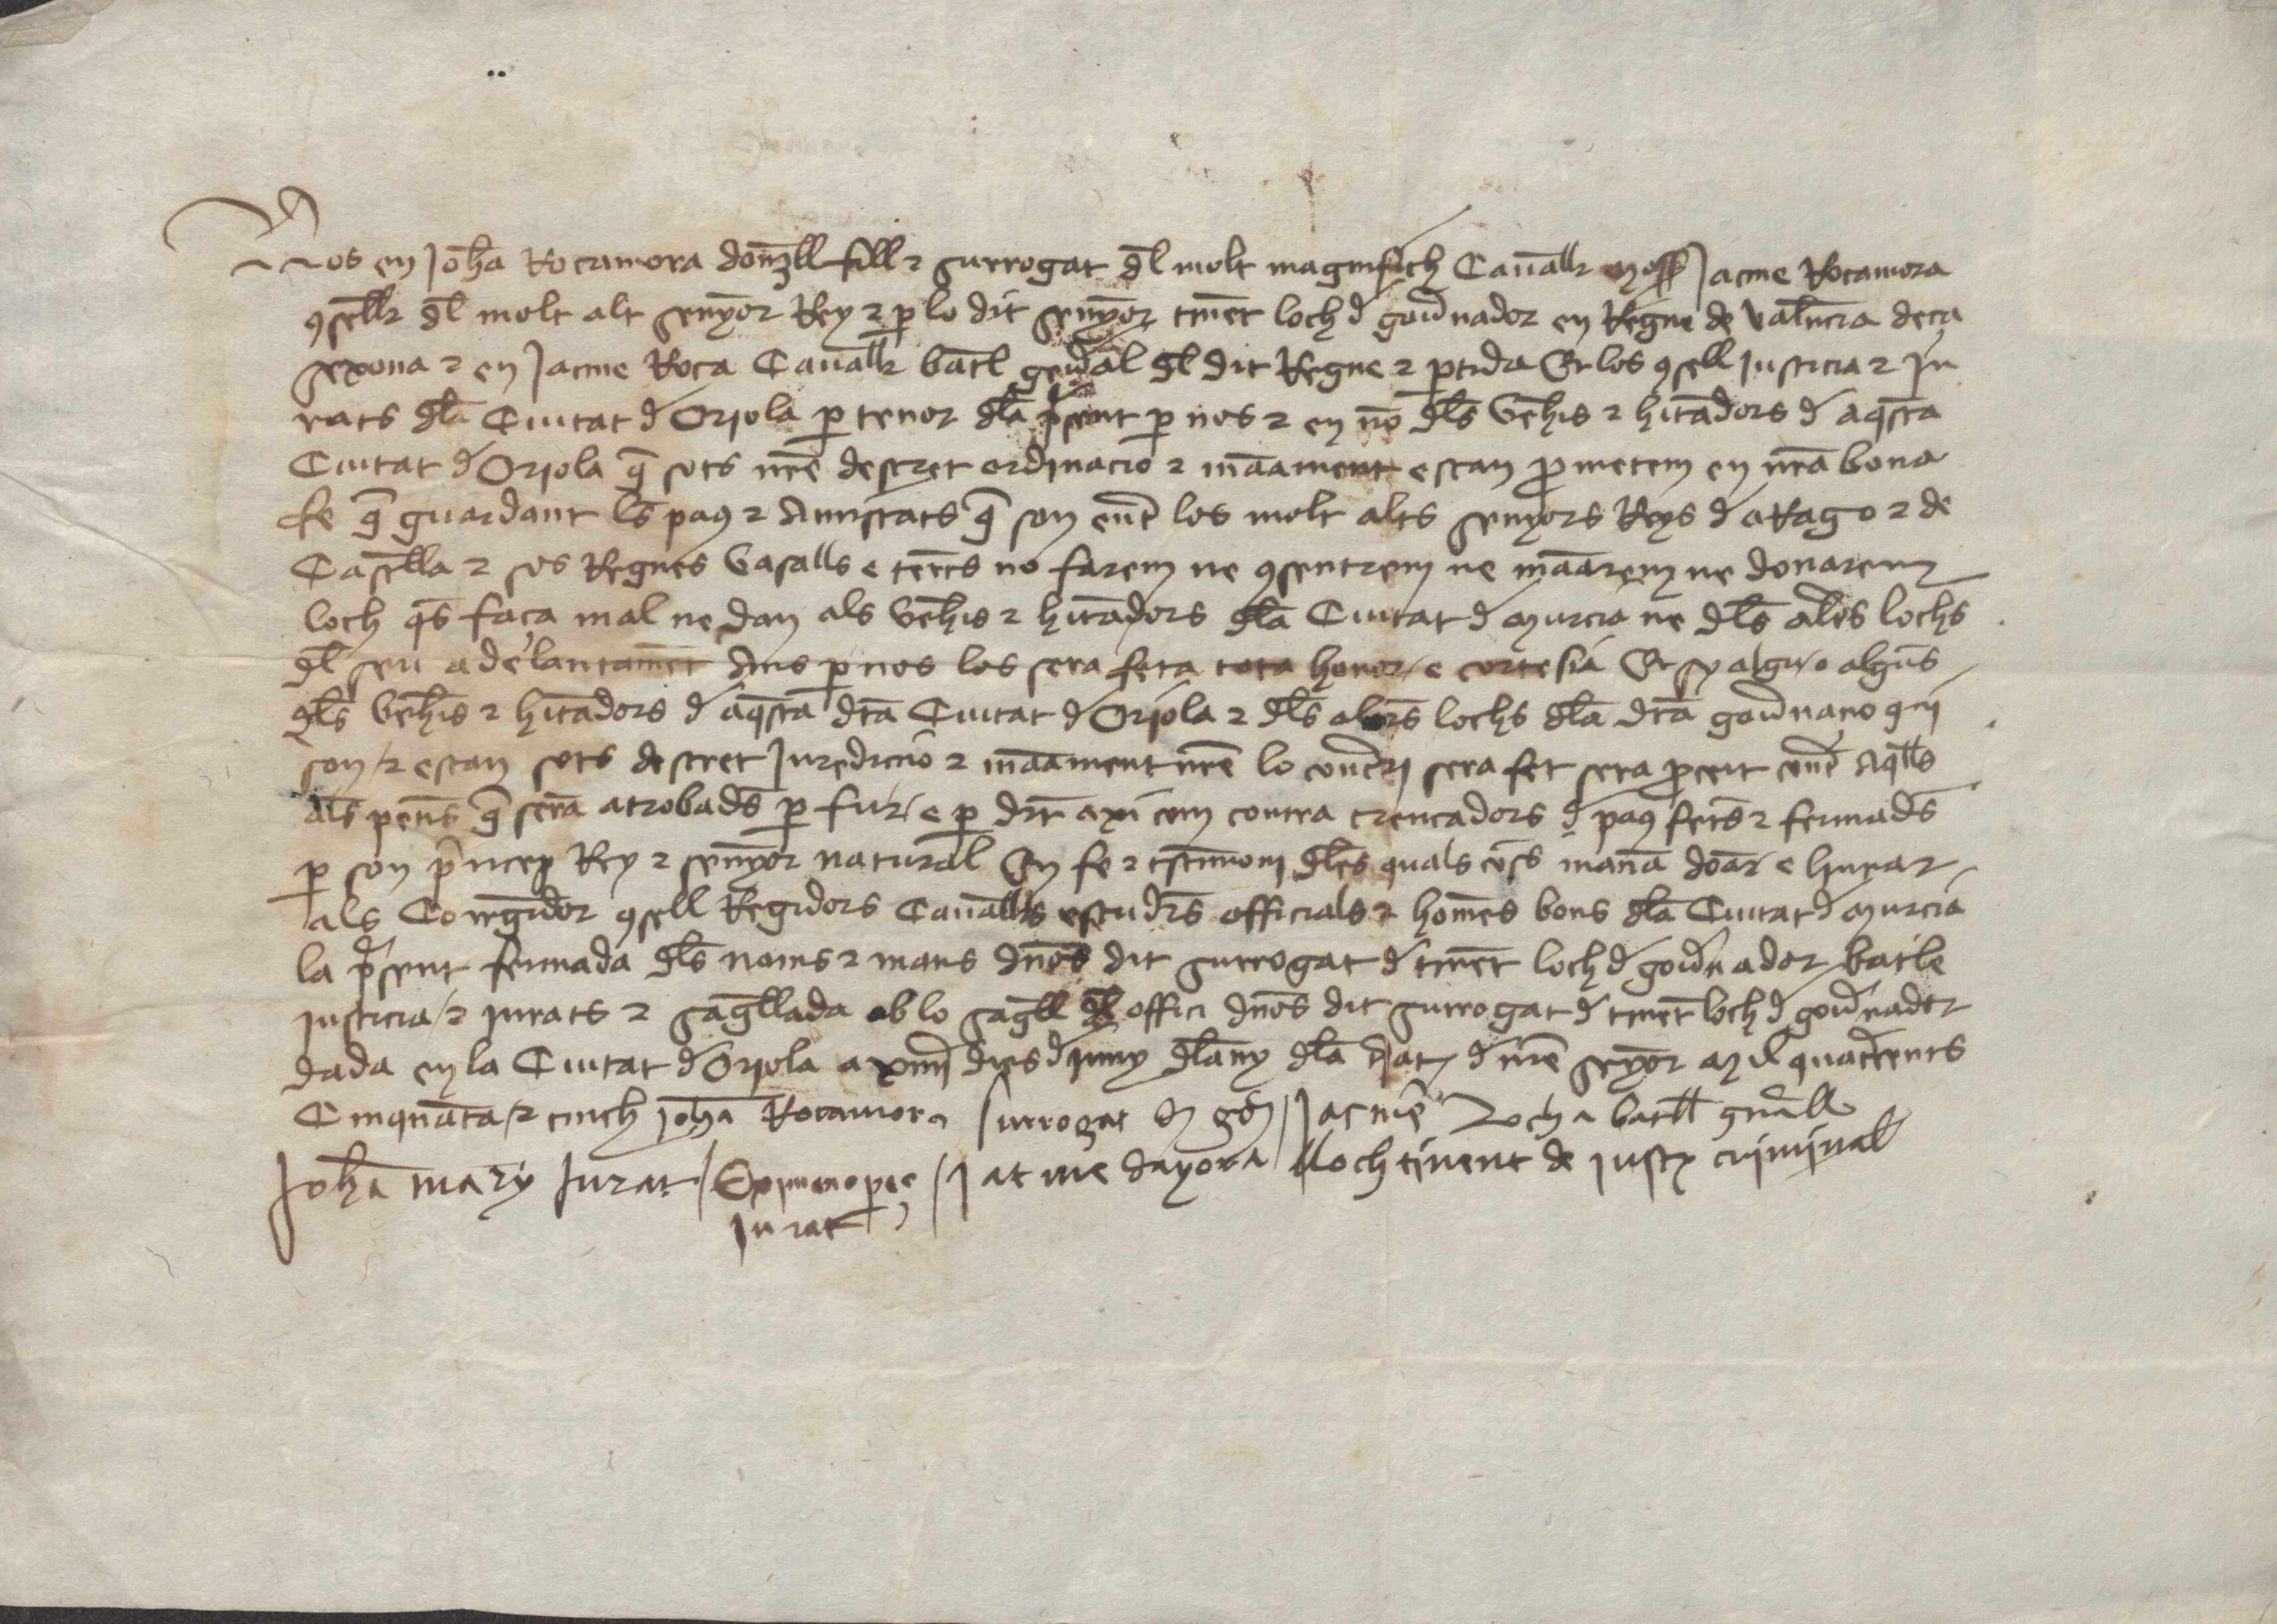 Nos en Joha Rocamora donzell fill e surrogat dl molt magnifich Cavallr moss Jacme Rocamora
consellr dl molt alt senyor Rey e p lo dit senyor tinet loch d governador en Regne de valencia deca
sexona e en Jacme Roca Cavallr batle general dl dit Regne e ptida Et los consell Justicia e Ju
rats dla Ciutat d Oriola p tenor dla psent p nos e en no dls vehis e hitadors d aqsta
Ciutat d Oriola q sots nre destret ordinacio e manament estan prometem en nra bona
fe q guardant ls paus e Amistats q son entre los molt alts senyors Reys d aRago e de
Castella e sos Regnes vasalls e terres no farem ne consentrem ne manarem ne donarem
loch qs faca mal ne dan als vehis e hitadors dla Ciutat d Murcia ne dls altres lochs
dl seu adelantamet Ans p nos los sera feta tota honor e cortesia Et sy algu o alguns
dls vehis e hitadors d aqsta dta Ciutat d Oriola e dls altres lochs dla dta governacio qui
son e estan sots destret Juredictio e manament nre lo contrari sera fet sera proceit contra Aqlls
als penes q sera atrobades p fur e p dret axi com contra trencadors d paus fetes e fermades
p son princep Rey e senyor natural En fe e testimoni dles quals coses mana donar e liurar
als Corregidor consell Regidors Cavallers escuders officials e homes bons dla Ciutat d Murcia
la psent fermada dls noms e mans d nos dit surrogat d tinet loch d governador batle
justicia e jurats e sagellada ab lo sagell dl offici d nos dit surrogat d tinet loch d governador
dada en la Ciutat d Oriola a xiiii dies d juny dlany dla nat d nre senyor Mil quatrecents
Cinquata e cinch Joha Rocamora surrogat d gdor Jacme Rocha batll gnall
Joha mary Jurat Eximeno pec Jacme dayona llochtinent de justx criminal
Jurat